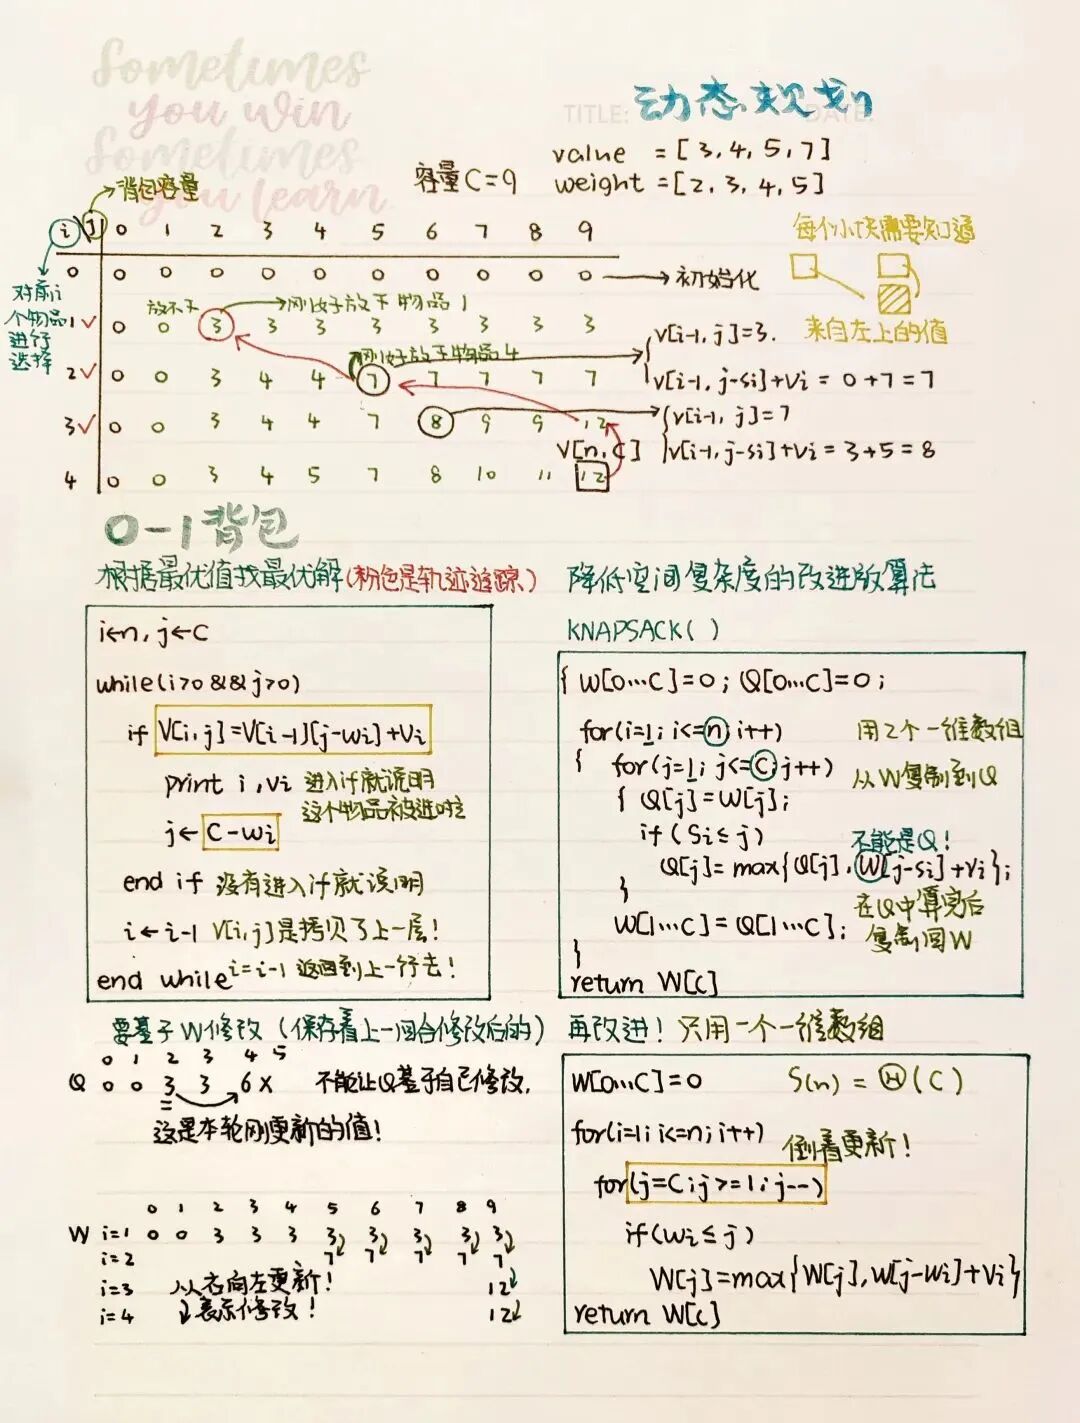 Sometimes
you win
Sometimes
you learn
TITLE:
DATE:
动态规划
value = [3, 4, 5, 7]
容量 C=9
weight = [2, 3, 4, 5]
背包容量
i j 0 1 2 3 4 5 6 7 8 9
每个小块需要知道
0 0 0 0 0 0 0 0 0 0 0 → 初始化
对前i
个物品
进行
选择
放不下
刚好放下物品1
来自左上的值
1 ✓ 0 0 3 3 3 3 3 3 3 3
v[i-1, j]=3.
刚好放下物品4
2 ✓ 0 0 3 4 4 7 7 7 7 7
v[i-1, j-si]+vi = 0+7=7
3 ✓ 0 0 3 4 4 7 8 9 9 12
v[i-1, j]=7
V[n, C]
v[i-1, j-si]+vi = 3+5=8
4 0 0 3 4 5 7 8 10 11 12
0-1背包
根据最优值找最优解(粉色是轨迹追踪)
i←n, j←C
while(i>0 && j>0)
if V[i, j]=V[i-1][j-wi]+Vi
print i, vi 进入if就说明
这个物品被选时
j← C-wi
end if 没有进入if就说明
i←i-1 V[i, j]是拷贝了上一层!
end while i=i-1 返回到上一行去!
降低空间复杂度的改进版算法
KNAPSACK( )
{ W[0…C]=0; Q[0…C]=0;
for(i=1; i<=n; i++) 用2个一维数组
{ for(j=1; j<=C; j++) 从W复制到Q
{ Q[j]=W[j];
if (Si≤j) 不能是Q!
Q[j]=max{Q[j], W[j-si]+vi};
} 在Q中算完后
W[1…C]=Q[1…C]; 复制回W
}
return W[c]
要基于W修改 (保存着上一回合修改后的)
0 1 2 3 4 5
Q 0 0 3 3 6 X 不能让Q基于自己修改,
这是本轮刚更新的值!
0 1 2 3 4 5 6 7 8 9
W i=1 0 0 3 3 3 3 3 3 3 3
i=2 7 7 7 7 7
i=3 从右向左更新! 12
i=4 ↓表示修改! 12
再改进! 只用一个一维数组
W[0…C]=0 S(n) = Θ(C)
for(i=1; i<=n; i++) 倒着更新!
for(j=C; j>=1; j--)
if(wi≤j)
W[j]=max{W[j], W[j-wi]+vi}
return W[c]